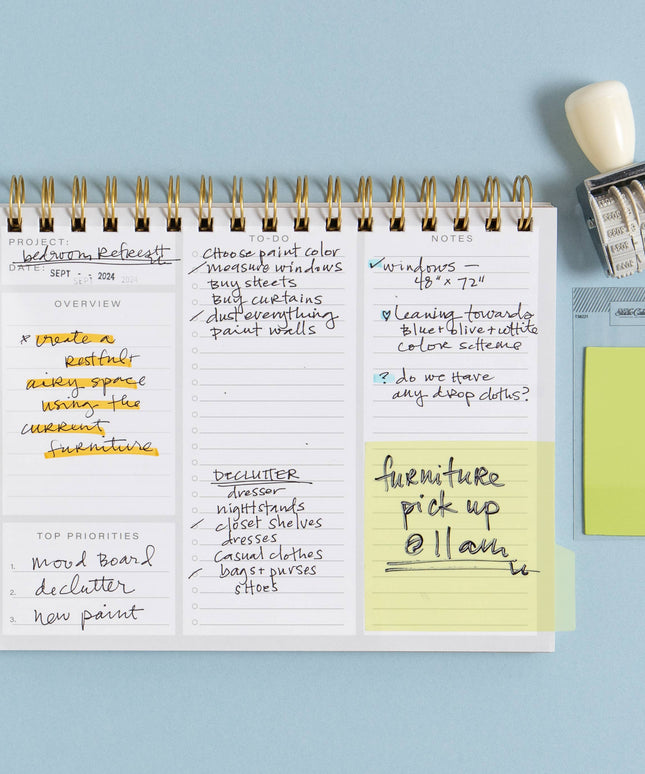 PROJECT:
bedroom Refresh
DATE:
SEPT - - 2024
OVERVIEW
* create a
Restful +
airy space
using the
current
furniture
TOP PRIORITIES
1. mood Board
2. declutter
3. new paint
TO-DO
choose paint color
measure windows
Buy sheets
Buy curtains
dust everything
paint walls
DECLUTTER
dresser
nightstands
closet shelves
dresses
casual clothes
bags + purses
shoes
NOTES
✓ windows —
48" x 72"
♡ leaning towards
Blue + olive + white
color scheme
? do we have
any drop cloths?
furniture
pick up
@ 11am